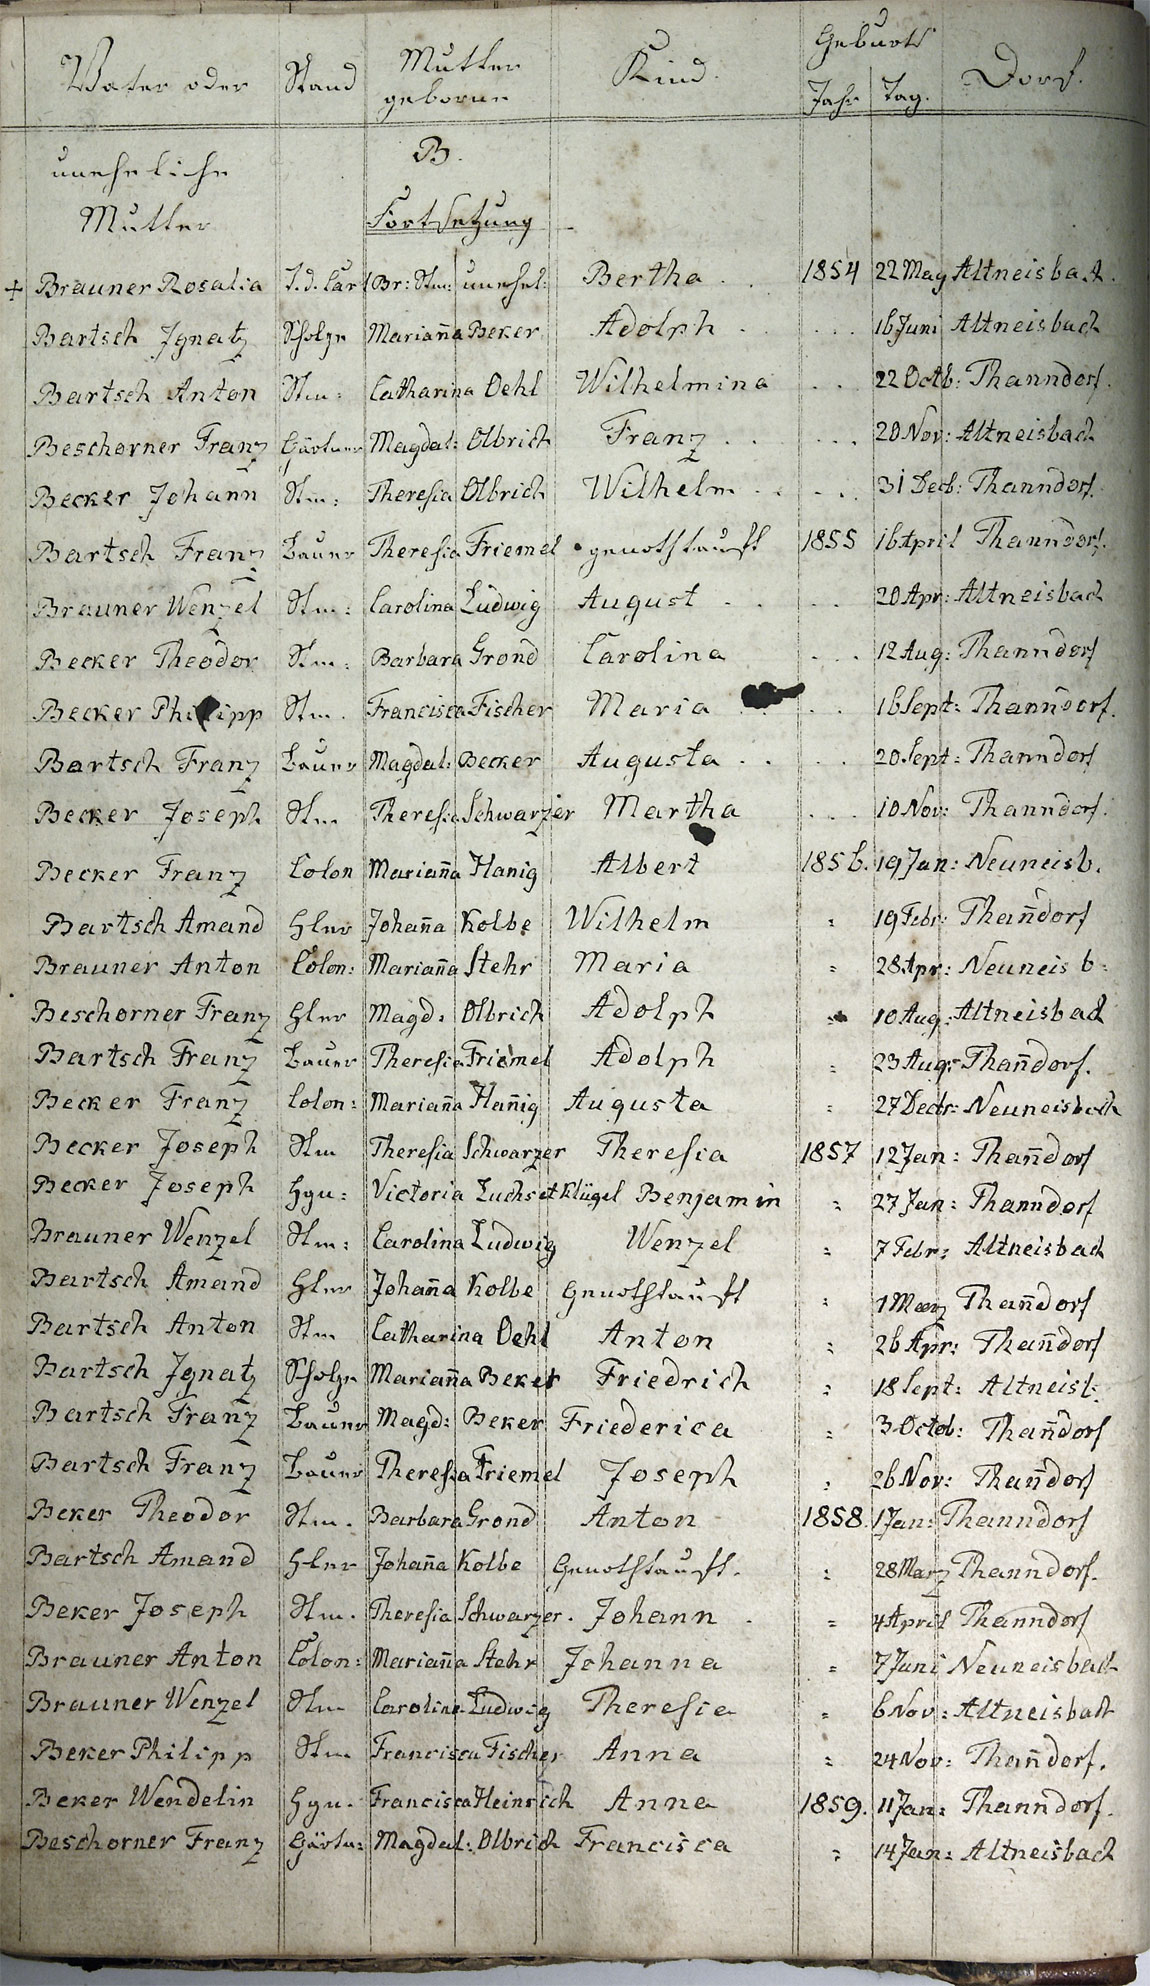 Vater oder Stand Mutter geborne Kind. Geburts Jahr Tag. Dorf.
uneheliche Mutter
B.
Fortsetzung
+ Brauner Rosalia Br: Stm: unehel: Bertha . . 1854 22 May Altneisbach.
Bartsch Ignatz Scholze Mariana Beker Adolph . . . . . 16 Juni Altneisbach
Bartsch Anton Stm: Catharina Oehl Wilhelmina . . . 22 Octb: Thanndorf.
Beschorner Franz Gärtner Magdal: Olbrich Franz . . . . . 20 Nov: Altneisbach
Becker Johann Stm: Theresia Olbrich Wilhelm . . . . 31 Decb: Thanndorf.
Bartsch Franz Bauer Theresia Friemel genothtauft 1855 16 April Thanndorf.
Brauner Wenzel Stm: Carolina Ludwig August . . . . 20 Apr: Altneisbach
Becker Theodor Stm: Barbara Grond Carolina . . . 12 Aug: Thanndorf
Becker Philipp Stm. Francisca Fischer Maria . . . . 16 Sept: Thanndorf.
Bartsch Franz Bauer Magdal: Becker Augusta . . . . 20 Sept: Thanndorf
Becker Joseph Stm Theresia Schwarzer Martha . . . 10 Nov: Thanndorf.
Becker Franz Colon Marian̄a Hanig Albert 1856. 19 Jan: Neuneisb.
Bartsch Amand Hler Johan̄a Kolbe Wilhelm : 19 Febr: Than̄dorf
Brauner Anton Colon: Marian̄a Stehr Maria : 28 Apr: Neuneisb:
Beschorner Franz Hler Magd: Olbrich Adolph : 10 Aug: Altneisbach
Bartsch Franz Bauer Theresia Friemel Adolph : 23 Aug: Than̄dorf.
Becker Franz Colon: Marian̄a Han̄ig Augusta : 27 Decbr: Neuneisbach
Becker Joseph Stm Theresia Schwarzer Theresia 1857 12 Jan: Than̄dorf
Becker Joseph Hgn: Victoria Klügel Benjamin : 27 Jan: Thanndorf
Brauner Wenzel Stm: Carolina Ludwig Wenzel : 7 Febr: Altneisbach
Bartsch Amand Hler Johan̄a Kolbe Genothtauft : 1 Merz Than̄dorf
Bartsch Anton Stm Catharina Oehl Anton : 26 Apr: Than̄dorf
Bartsch Ignatz Scholze Marian̄a Beker Friedrich : 18 Sept: Altneisb:
Bartsch Franz Bauer Magd: Beker Friederica : 3 Octob: Than̄dorf
Bartsch Franz Bauer Theresia Friemel Joseph : 26 Nov: Than̄dorf
Beker Theodor Stm. Barbara Grond Anton 1858. 1 Jan: Thanndorf
Bartsch Amand Hler Johan̄a Kolbe Genothtauft. : 28 Marz Thanndorf.
Beker Joseph Stm. Theresia Schwarzer. Johann . : 4 April Thanndorf
Brauner Anton Colon: Marian̄a Stehr Johanna : 7 Juni Neuneisbach
Brauner Wenzel Stm Carolina Ludwig Theresia : 6 Nov: Altneisbach
Beker Philipp Stm Francisca Fischer Anna : 24 Nov: Than̄dorf.
Beker Wendelin Hgn. Francisca Heinrich Anna 1859. 11 Jan: Thanndorf.
Beschorner Franz Gärtn: Magdal: Olbrich Francisca : 14 Jan: Altneisbach